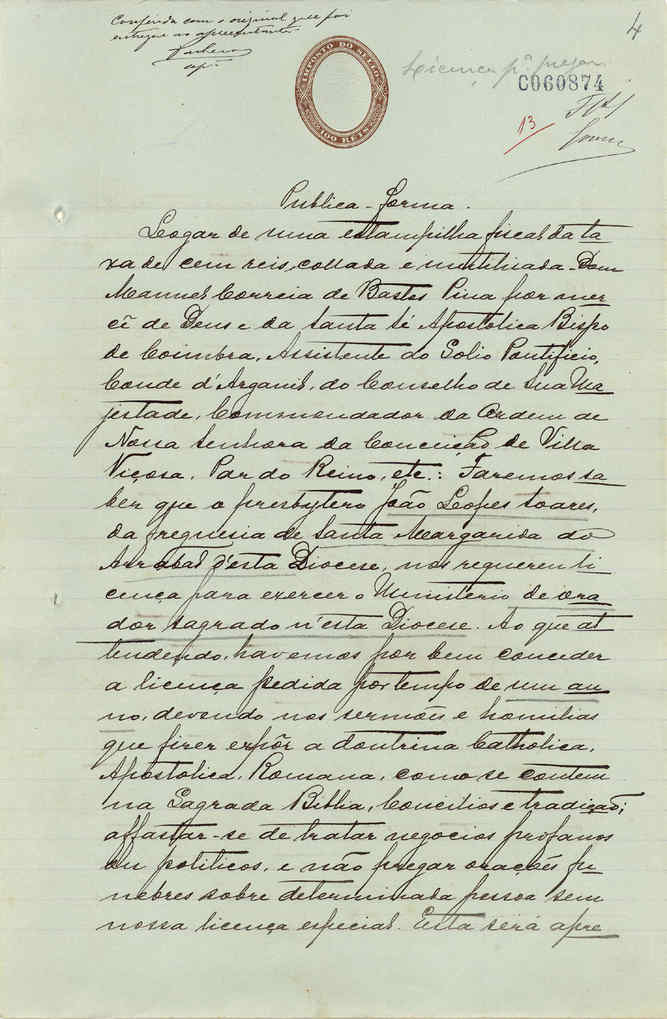 Conferida com o original que foi
entregue ao apresentante.
4
IMPOSTO DO SELLO
100 REIS
Licença pª. pregar
C060874
13
Publica-forma.
Logar de uma estampilha fiscal da ta
xa de cem reis, collada e inutilisada. Dom
Manuel Correia de Bastos Pina por mer
cê de Deus e da Santa Sé Apostolica Bispo
de Coimbra, Assistente ao Solio Pontificio,
Conde d'Arganil, do Conselho de Sua Ma
jestade, Commendador da Ordem de
Nossa Senhora da Conceição de Villa
Viçosa, Par do Reino, etc.: Faremos sa
ber que o presbytero João Lopes Soares,
da freguesia de Santa Margarida do
Arrabal d'esta Diocese, nos requereu li
cença para exercer o Ministerio de ora
dor sagrado n'esta Diocese. Ao que at
tendendo, havemos por bem conceder
a licença pedida por tempo de um an
no, devendo nos sermões e homilias
que fizer expôr a doutrina Catholica,
Apostolica, Romana, como se contem
na Sagrada Biblia, Concilios e tradição;
affastar-se de tratar negocios profanos
ou politicos, e não pregar orações fu
nebres sobre determinada pessoa sem
nossa licença especial. Esta será apre